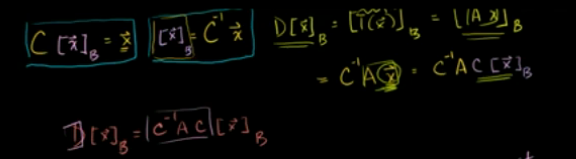 C [x⃗]_B = x⃗   [x⃗]_B = C⁻¹ x⃗   D[x⃗]_B = [T(x⃗)]_B = [Ax⃗]_B
= C⁻¹A x⃗ = C⁻¹A C [x⃗]_B
D [x⃗]_B = C⁻¹ A C [x⃗]_B